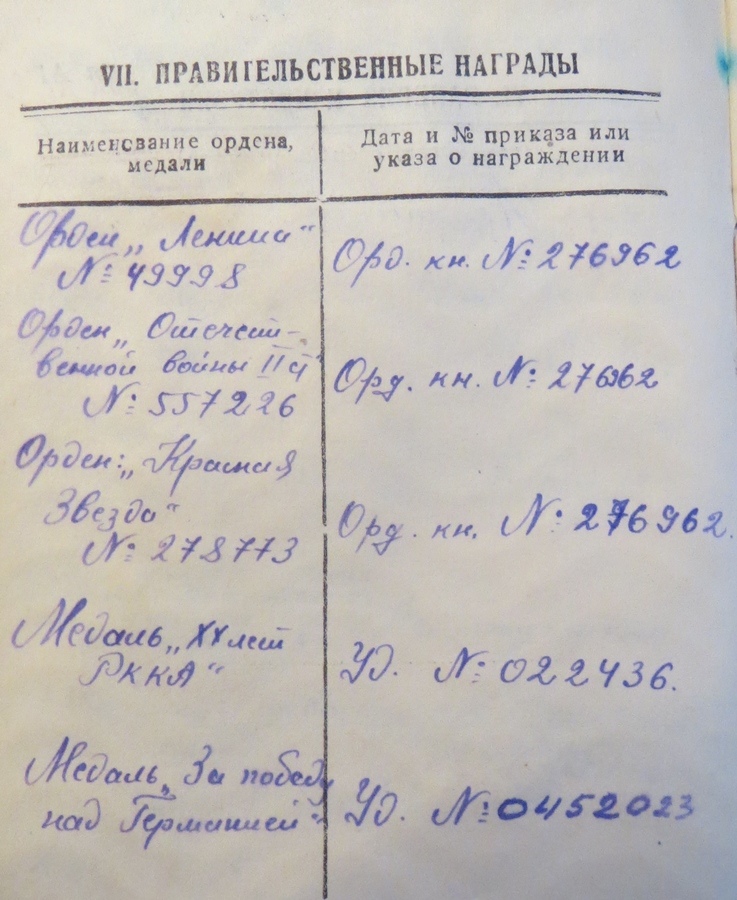 VII. ПРАВИТЕЛЬСТВЕННЫЕ НАГРАДЫ
Наименование ордена,
медали
Дата и № приказа или
указа о награждении
Орден „Ленина“
№ 49998
Орд. кн. № 276962
Орден „Отечест-
венной войны II ст“
№ 557226
Орд. кн. № 276962
Орден: „Красная
Звезда“
№ 278773
Орд. кн. № 276962.
Медаль „XX лет
РККА“
Уд. № 022436.
Медаль „За победу
над Германией“
Уд. № 0452023